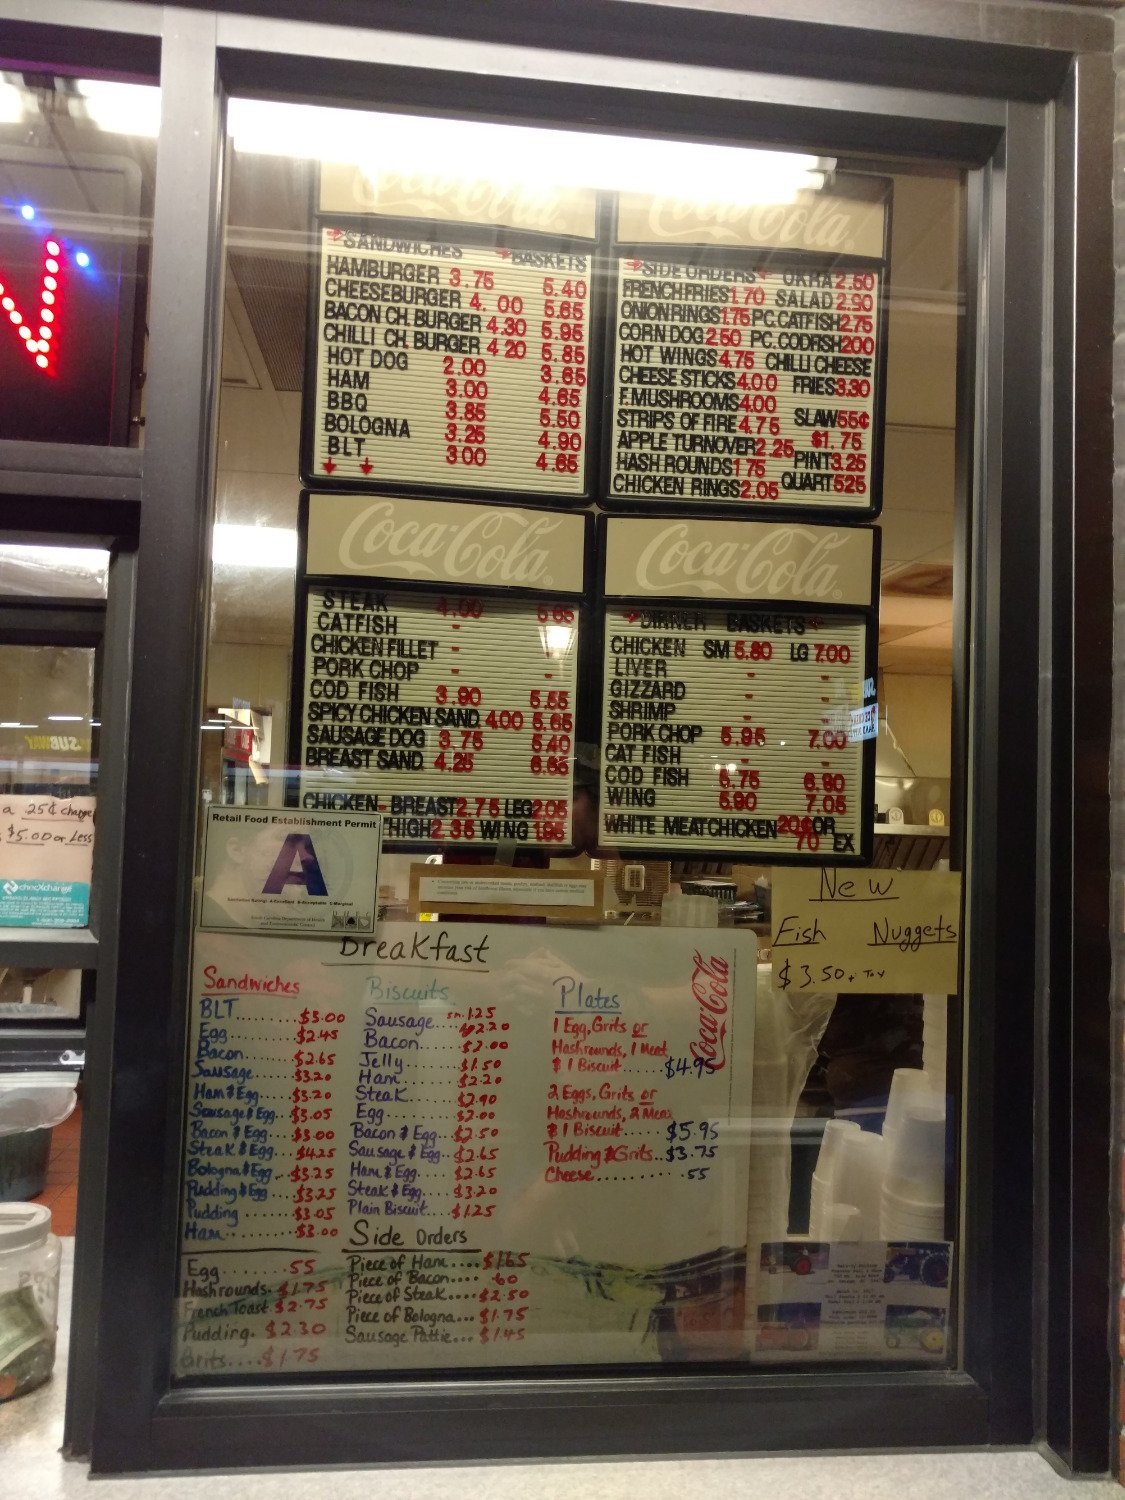 Coca-Cola
→SANDWICHES →BASKETS
HAMBURGER 3.75 5.40
CHEESEBURGER 4.00 5.65
BACON CH. BURGER 4.30 5.95
CHILLI CH. BURGER 4 20 5.85
HOT DOG 2.00 3.65
HAM 3.00 4.65
BBQ 3.85 5.50
BOLOGNA 3.25 4.90
BLT 3.00 4.65
Coca-Cola
→SIDE ORDERS← OKRA 2.50
FRENCH FRIES 1.70 SALAD 2.90
ONION RINGS 1.75 PC. CATFISH 2.75
CORN DOG 2.50 PC. CODFISH 200
HOT WINGS 4.75 CHILLI CHEESE
CHEESE STICKS 4.00 FRIES 3.30
F. MUSHROOMS 4.00
STRIPS OF FIRE 4.75 SLAW 55¢
APPLE TURNOVER 2.25 $1.75
HASH ROUNDS 1.75 PINT 3.25
CHICKEN RINGS 2.05 QUART 525
Coca-Cola
STEAK 4.00 5.65
CATFISH - -
CHICKEN FILLET - -
PORK CHOP - -
COD FISH 3.90 5.55
SPICY CHICKEN SAND 4.00 5.65
SAUSAGE DOG 3.75 5.40
BREAST SAND. 4.25
CHICKEN- BREAST 2.75 LEG 2.05
HIGH 2.35 WING 1.95
Coca-Cola
→DINNER BASKETS←
CHICKEN SM 5.80 LG 7.00
LIVER - -
GIZZARD - -
SHRIMP - -
PORK CHOP 5.95 7.00
CAT FISH - -
COD FISH 5.75 6.90
WING 5.90 7.05
WHITE MEAT CHICKEN 20¢ OR
70 EX
SUBWAY
a 25¢ charge
$5.00 or Less
Retail Food Establishment Permit
A
New
Fish Nuggets
$3.50 + Tax
Breakfast
Coca-Cola
Sandwiches
BLT........$3.00
Egg.......$2.45
Bacon.....$2.65
Sausage....$3.20
Ham & Egg....$3.20
Sausage & Egg...$3.05
Bacon & Egg....$3.00
Steak & Egg....$4.25
Bologna & Egg...$3.25
Pudding & Egg...$3.25
Pudding......$3.05
Ham.........$3.00
Egg....... .55
Hashrounds. $1.75
French Toast. $2.75
Pudding. $2.30
Grits....$1.75
Biscuits
Sausage... sm. 1.25
2.20
Bacon.....$2.00
Jelly......$1.50
Ham......$2.20
Steak.....$2.90
Egg.......$2.00
Bacon & Egg...$2.50
Sausage & Egg..$2.65
Ham & Egg....$2.65
Steak & Egg....$3.20
Plain Biscuit...$1.25
Side Orders
Piece of Ham....$1.65
Piece of Bacon.... .60
Piece of Steak....$2.50
Piece of Bologna...$1.75
Sausage Pattie...$1.45
Plates
1 Egg, Grits or
Hashrounds, 1 Meat
& 1 Biscuit.....$4.95
2 Eggs, Grits or
Hashrounds, 2 Meat
& 1 Biscuit.....$5.95
Pudding & Grits..$3.75
Cheese.......... .55